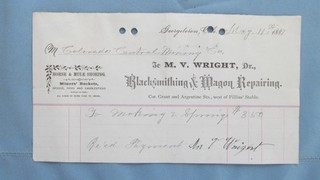 Georgetown, May 11th 188
M Colorado Central Mining Co
To M. V. WRIGHT, Dr.,
HORSE & MULE SHOEING,
Miners' Buckets,
Blacksmithing & Wagon Repairing.
Cor. Grant and Argentine Sts., west of Fillius' Stable.
To Making 2 Springs $3.50
Rec'd Payment M V Wright